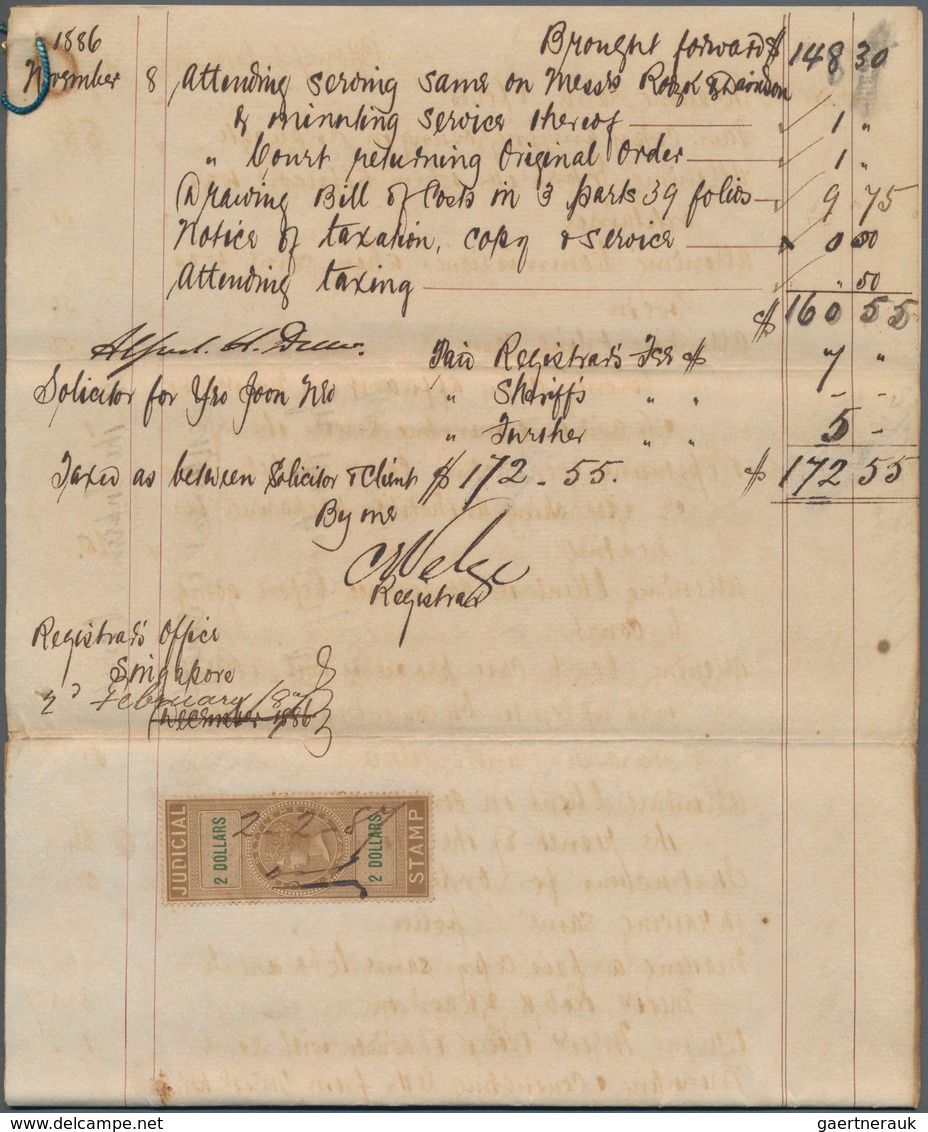 1886 Brought forward $ 148 30
November 8 Attending serving same on Messrs
& minuting service thereof 1 "
" Court returning Original Order 1 "
Drawing Bill of Costs in 3 parts 39 folios 9 75
Notice of taxation, copy & service 0
Attending taxing " 50
$ 160 55
Paid Registrar's Fees $ 7 "
Solicitor for Yeo Joon Neo " Sheriff's " " - -
" Further " " 5 -
Taxed as between Solicitor & Client $ 172 - 55. $ 172 55
By me
Registrar
Registrar's Office
Singapore
2d February /87
December 1886
JUDICIAL
2 DOLLARS
2 - 2 - 87
2 DOLLARS
STAMP
gaertnerauk